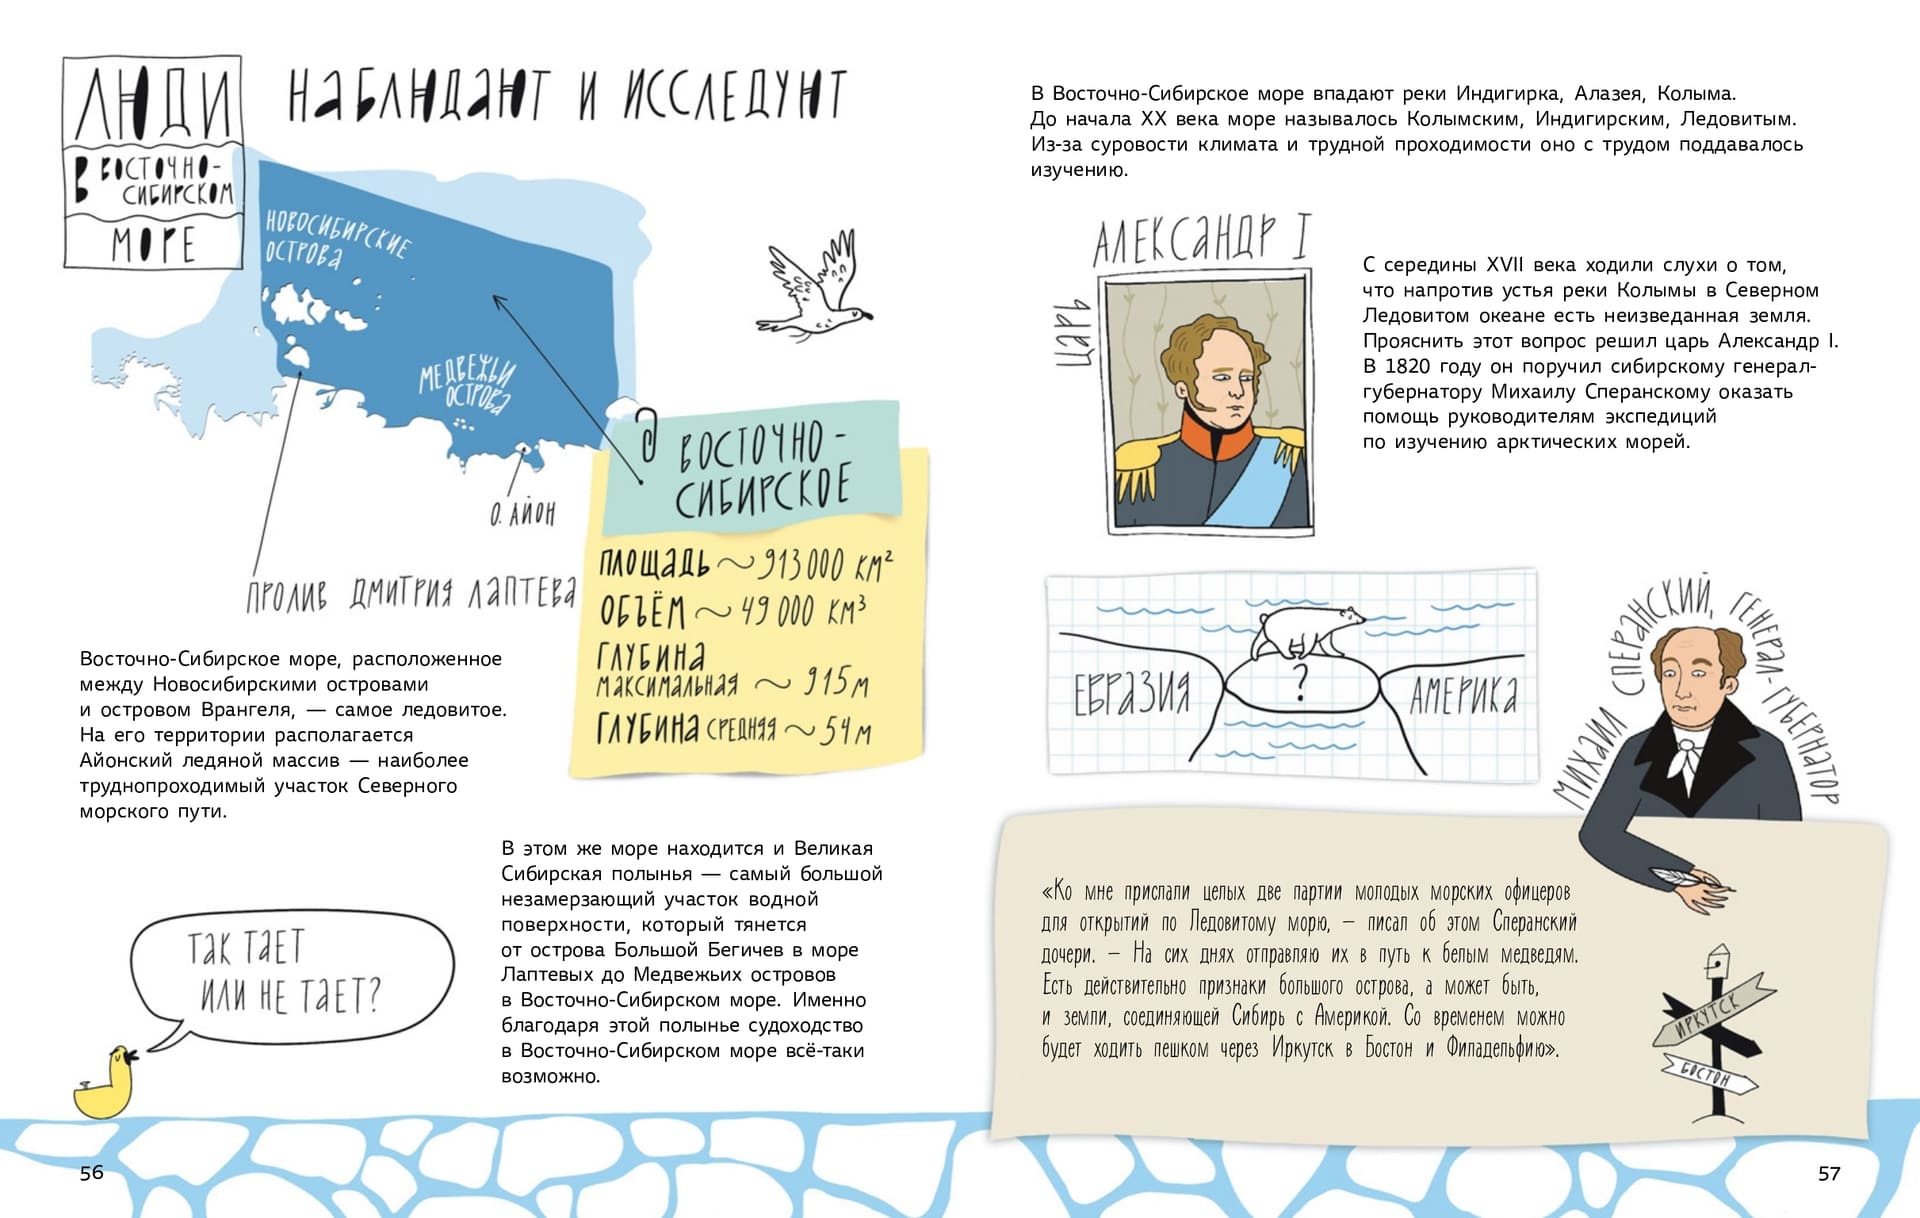 ЛЮДИ
В ВОСТОЧНО-
СИБИРСКОМ
МОРЕ
НАБЛЮДАЮТ И ИССЛЕДУЮТ
НОВОСИБИРСКИЕ
ОСТРОВА
МЕДВЕЖЬИ
ОСТРОВА
О. АЙОН
ПРОЛИВ ДМИТРИЯ ЛАПТЕВА
ВОСТОЧНО-
СИБИРСКОЕ
ПЛОЩАДЬ ~ 913 000 КМ²
ОБЪЁМ ~ 49 000 КМ³
ГЛУБИНА
МАКСИМАЛЬНАЯ ~ 915 М
ГЛУБИНА СРЕДНЯЯ ~ 54 М
Восточно-Сибирское море, расположенное
между Новосибирскими островами
и островом Врангеля, — самое ледовитое.
На его территории располагается
Айонский ледяной массив — наиболее
труднопроходимый участок Северного
морского пути.
В этом же море находится и Великая
Сибирская полынья — самый большой
незамерзающий участок водной
поверхности, который тянется
от острова Большой Бегичев в море
Лаптевых до Медвежьих островов
в Восточно-Сибирском море. Именно
благодаря этой полынье судоходство
в Восточно-Сибирском море всё-таки
возможно.
ТАК ТАЕТ
ИЛИ НЕ ТАЕТ?
56
В Восточно-Сибирское море впадают реки Индигирка, Алазея, Колыма.
До начала XX века море называлось Колымским, Индигирским, Ледовитым.
Из-за суровости климата и трудной проходимости оно с трудом поддавалось
изучению.
ЦАРЬ
АЛЕКСАНДР I
С середины XVII века ходили слухи о том,
что напротив устья реки Колымы в Северном
Ледовитом океане есть неизведанная земля.
Прояснить этот вопрос решил царь Александр I.
В 1820 году он поручил сибирскому генерал-
губернатору Михаилу Сперанскому оказать
помощь руководителям экспедиций
по изучению арктических морей.
ЕВРАЗИЯ
?
АМЕРИКА
МИХАИЛ СПЕРАНСКИЙ, ГЕНЕРАЛ-ГУБЕРНАТОР
«Ко мне прислали целых две партии молодых морских офицеров
для открытий по Ледовитому морю, — писал об этом Сперанский
дочери. — На сих днях отправляю их в путь к белым медведям.
Есть действительно признаки большого острова, а может быть,
и земли, соединяющей Сибирь с Америкой. Со временем можно
будет ходить пешком через Иркутск в Бостон и Филадельфию».
ИРКУТСК
БОСТОН
57